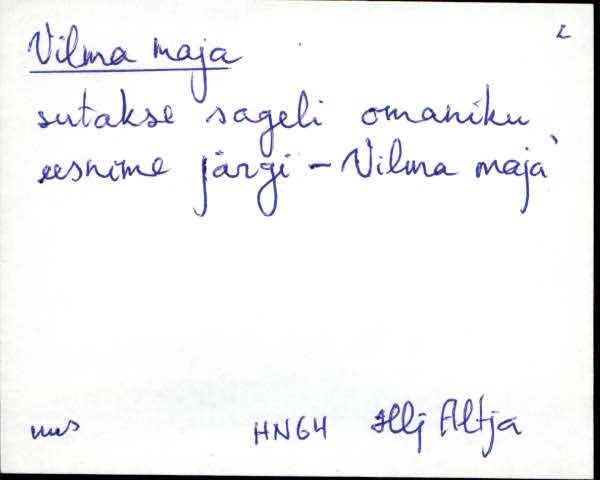 Vilma maja
sutakse sageli omaniku
eesnime järgi – Vilma maja
HN64 Hlj Altja